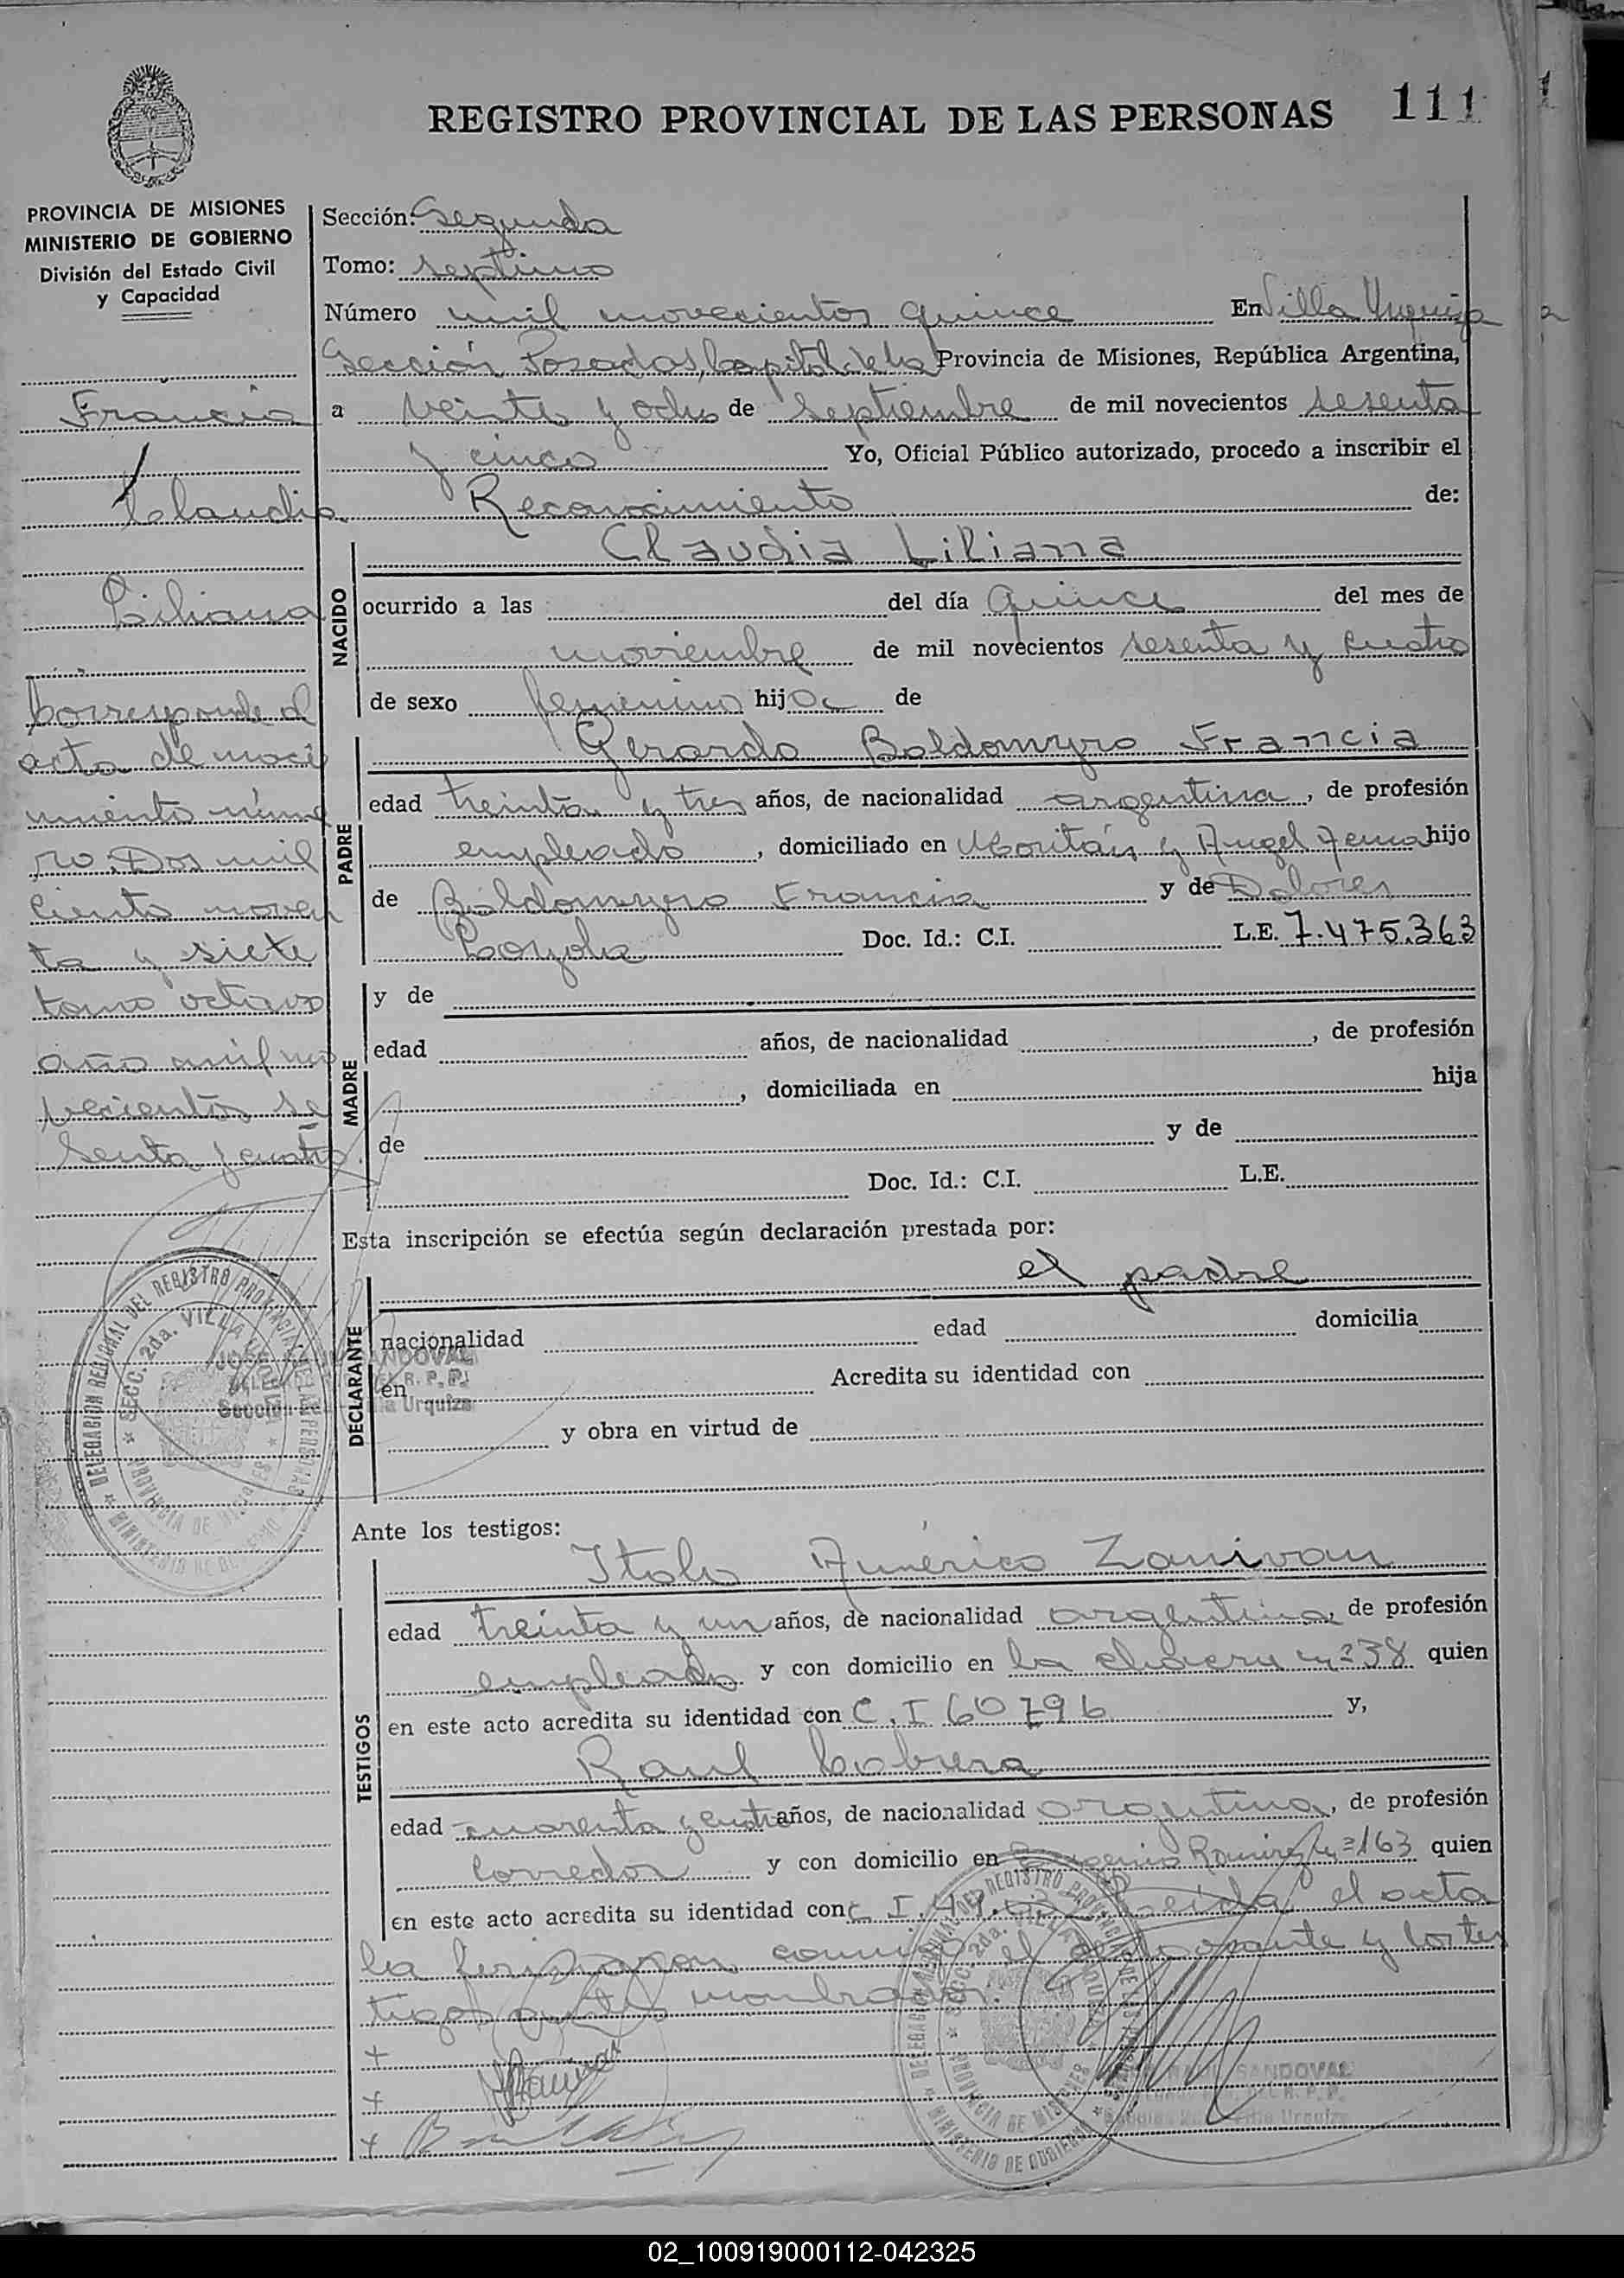 REGISTRO PROVINCIAL DE LAS PERSONAS 111
PROVINCIA DE MISIONES
MINISTERIO DE GOBIERNO
División del Estado Civil
y Capacidad
Francia
Claudia
Liliana
Corresponde al
acta de naci
miento núme
ro Dos mil
ciento noven
ta y siete
tomo octavo
año mil no
vecientos se
senta y cuatro
Sección: Segunda
Tomo: septimo
Número mil novecientos quince En Villa Urquiza
Sección Posadas, Capital de la Provincia de Misiones, República Argentina,
a veinte y ocho de Septiembre de mil novecientos sesenta
y cinco Yo, Oficial Público autorizado, procedo a inscribir el
Reconocimiento de:
NACIDO
Claudia Liliana
ocurrido a las del día quince del mes de
noviembre de mil novecientos sesenta y cuatro
de sexo femenino hija de
PADRE
Gerardo Baldomyro Francia
edad treinta y tres años, de nacionalidad argentina, de profesión
empleado, domiciliado en y Angel hijo
de Baldomyro Francia y de Dolores
Loyola Doc. Id.: C.I. L.E. 7.475.363
MADRE
y de
edad años, de nacionalidad , de profesión
, domiciliada en hija
de y de
Doc. Id.: C.I. L.E.
Esta inscripción se efectúa según declaración prestada por:
el padre
DECLARANTE
nacionalidad edad domicilia
en Acredita su identidad con
y obra en virtud de
Ante los testigos:
TESTIGOS
Italo Américo Zanivan
edad treinta y un años, de nacionalidad argentina, de profesión
empleado y con domicilio en la chacra nº 38 quien
en este acto acredita su identidad con C.I 60796 y,
Raul Cabrera
edad cuarenta y cuatro años, de nacionalidad argentina, de profesión
Corredor y con domicilio en Ramirez nº 163 quien
en este acto acredita su identidad con C.I. Leida el acta
la firmaron conmigo el y los tes
tigos antes nombrados.
DELEGACION REGIONAL DEL REGISTRO PROVINCIAL DE LAS PERSONAS
SECC. 2da. VILLA URQUIZA
PROVINCIA DE MISIONES
MINISTERIO DE GOBIERNO
SANDOVAL
R. P. P.
Villa Urquiza
DELEGACION REGIONAL DEL REGISTRO PROVINCIAL DE LAS PERSONAS
SECC. 2da. VILLA URQUIZA
PROVINCIA DE MISIONES
MINISTERIO DE GOBIERNO
SANDOVAL
R. P. P.
Villa Urquiza
02_100919000112-042325